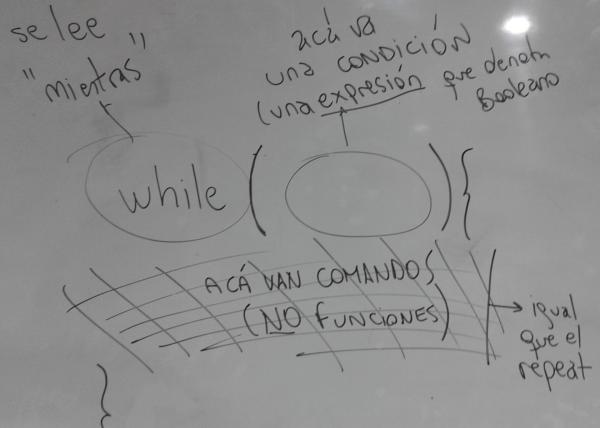 se lee
"mientras"
acá va
una CONDICIÓN
(una expresión que denota
Booleano
while ( ) {
ACÁ VAN COMANDOS
(NO FUNCIONES)
igual
que el
repeat
}